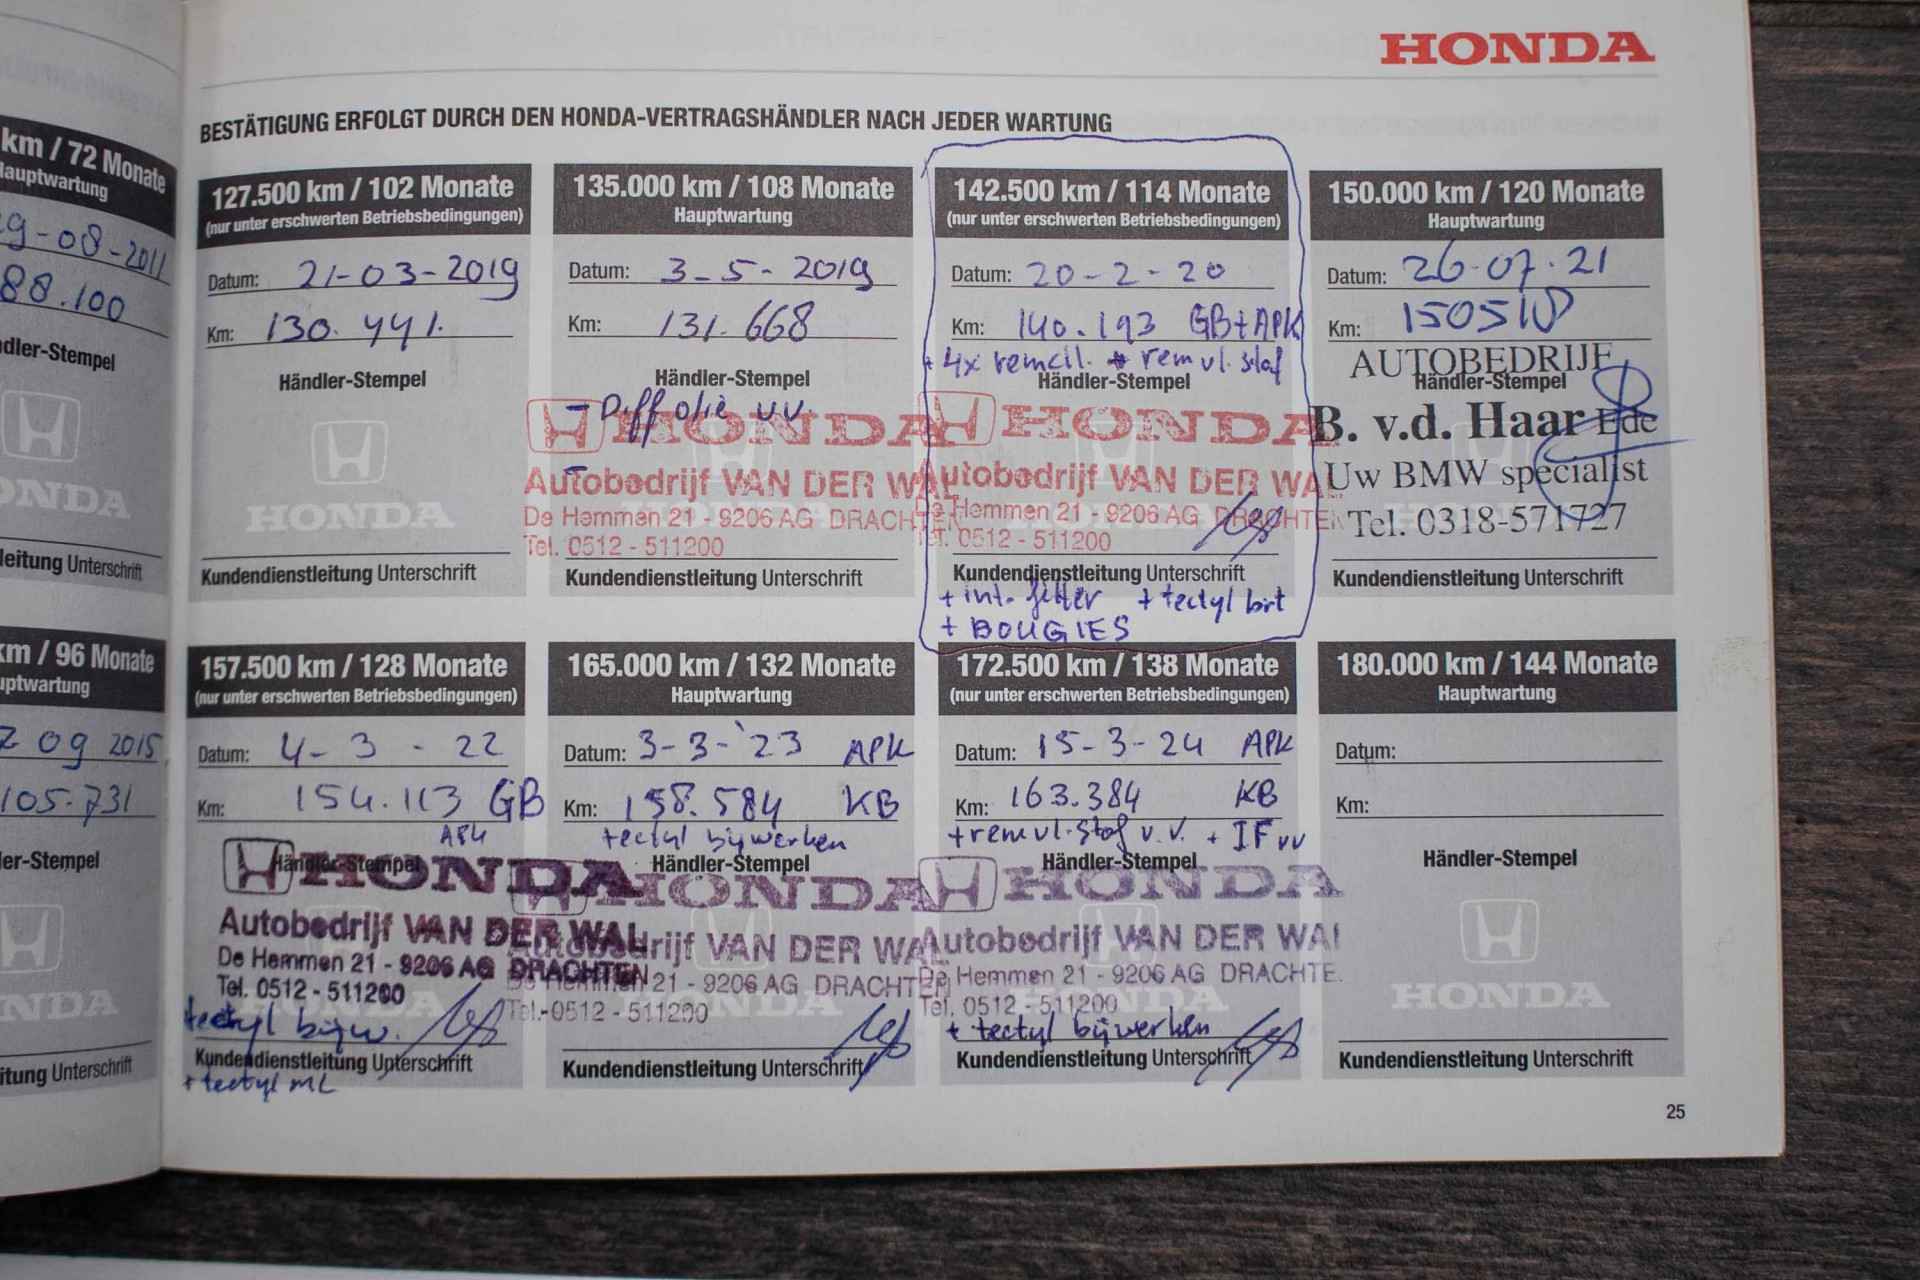 HONDA
BESTÄTIGUNG ERFOLGT DURCH DEN HONDA-VERTRAGSHÄNDLER NACH JEDER WARTUNG
km / 72 Monate
Hauptwartung
29-08-2011
88.100
Händler-Stempel
HONDA
leitung Unterschrift
127.500 km / 102 Monate
(nur unter erschwerten Betriebsbedingungen)
Datum: 21-03-2019
Km: 130.441.
Händler-Stempel
HONDA
Kundendienstleitung Unterschrift
135.000 km / 108 Monate
Hauptwartung
Datum: 3-5-2019
Km: 131.668
Händler-Stempel
- Diff olie v.v.
HONDA
Autobedrijf VAN DER WAL
De Hemmen 21 - 9206 AG DRACHTEN
Tel. 0512 - 511200
Kundendienstleitung Unterschrift
142.500 km / 114 Monate
(nur unter erschwerten Betriebsbedingungen)
Datum: 20-2-20
Km: 140.193 GB+APK
+ 4x remcil. + remvl.stof
Händler-Stempel
HONDA
Autobedrijf VAN DER WAL
De Hemmen 21 - 9206 AG DRACHTEN
Tel. 0512 - 511200
Kundendienstleitung Unterschrift
+ int. filter + tectyl
+ BOUGIES
150.000 km / 120 Monate
Hauptwartung
Datum: 26-07-21
Km: 150510
AUTOBEDRIJF
Händler-Stempel
B. v.d. Haar Ede
Uw BMW specialist
Tel. 0318-571727
Kundendienstleitung Unterschrift
km / 96 Monate
Hauptwartung
09 2015
105.731
Händler-Stempel
HONDA
leitung Unterschrift
157.500 km / 128 Monate
(nur unter erschwerten Betriebsbedingungen)
Datum: 4-3-22
Km: 154.113 GB
APK
Händler-Stempel
HONDA
Autobedrijf VAN DER WAL
De Hemmen 21 - 9206 AG DRACHTEN
Tel. 0512 - 511200
tectyl bijw.
Kundendienstleitung Unterschrift
+ tectyl ML
165.000 km / 132 Monate
Hauptwartung
Datum: 3-3-'23 APK
Km: 158.584 KB
tectyl bijwerken
Händler-Stempel
HONDA
Autobedrijf VAN DER WAL
De Hemmen 21 - 9206 AG DRACHTEN
Tel. 0512 - 511200
Kundendienstleitung Unterschrift
172.500 km / 138 Monate
(nur unter erschwerten Betriebsbedingungen)
Datum: 15-3-24 APK
Km: 163.384 KB
+remvl.stof v.v. + IF vv
Händler-Stempel
HONDA
Autobedrijf VAN DER WAL
De Hemmen 21 - 9206 AG DRACHTE.
Tel. 0512 - 511200
+ tectyl bijwerken
Kundendienstleitung Unterschrift
180.000 km / 144 Monate
Hauptwartung
Datum:
Km:
Händler-Stempel
HONDA
Kundendienstleitung Unterschrift
25